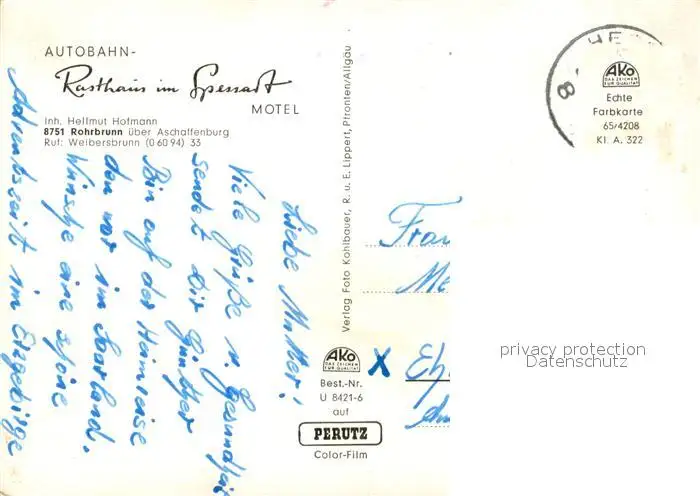 AUTOBAHN-
Rasthaus im Spessart
MOTEL
Inh. Hellmut Hofmann
8751 Rohrbrunn über Aschaffenburg
Ruf: Weibersbrunn (0 60 94) 33
Liebe Mutter!
Viele Grüße u. Gesundheit
sendet Dir Günther
Bin auf der Heimreise
den war im Saarland.
Wünsche eine schöne
Adventszeit im Erzgebirge
Verlag Foto Kohlbauer, R. u. E. Lippert, Pfronten/Allgäu
AKO
DAS ZEICHEN
FÜR QUALITÄT
Best.-Nr.
U 8421-6
auf
PERUTZ
Color-Film
8
AKO
DAS ZEICHEN
FÜR QUALITÄT
Echte
Farbkarte
65/4208
Kl. A. 322
Frau
X
privacy protection
Datenschutz